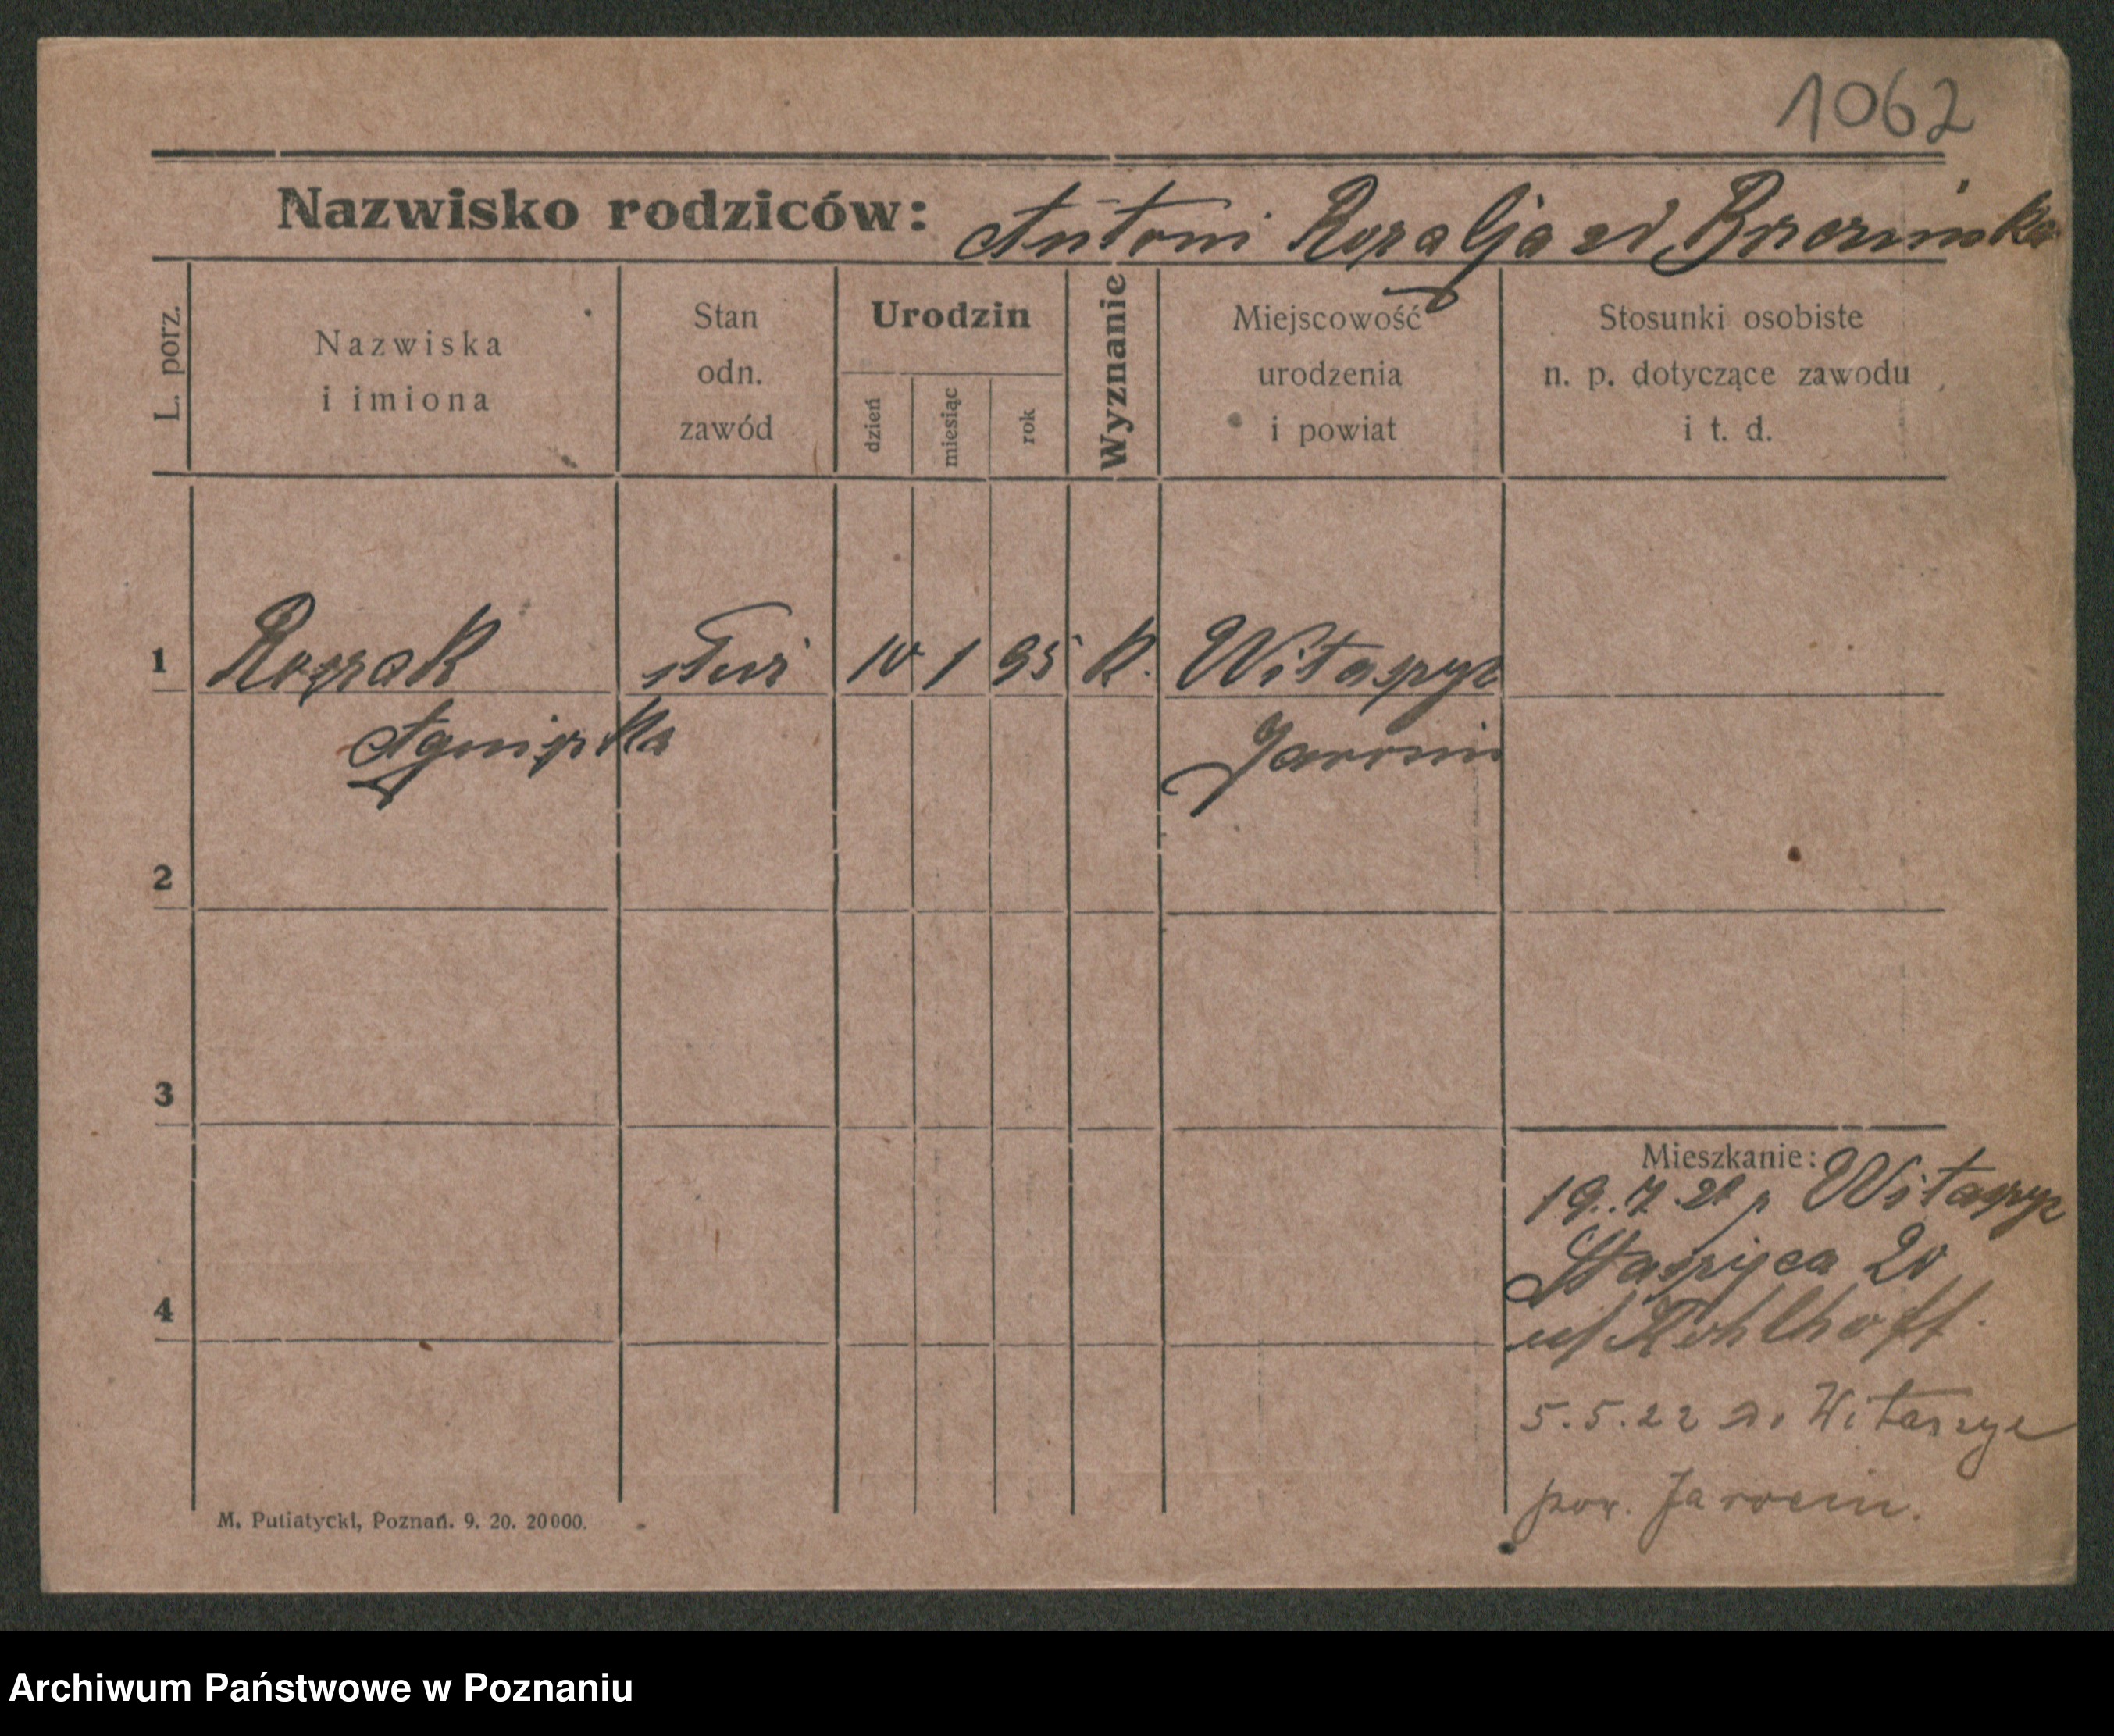 1062
Nazwisko rodziców: Antoni Rozalja zd Brzezinska
L. porz.
Nazwiska
i imiona
Stan
odn.
zawód
Urodzin
dzień
miesiąc
rok
Wyznanie
Miejscowość
urodzenia
i powiat
Stosunki osobiste
n. p. dotyczące zawodu
i t. d.
1 Rozak 10 1 95 k. Witaszyc
Agniszka Jarocin
2
3
Mieszkanie: Witaszyc
19.7.21
Staszyca 20
4
u/ Kohlhoff.
5.5.22 do Witaszyc
pow. Jarocin.
M. Putiatycki, Poznań. 9. 20. 20000.
Archiwum Państwowe w Poznaniu